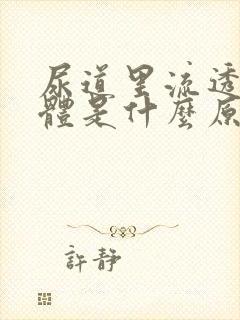 尿道里流透
體是什麼原
許靜